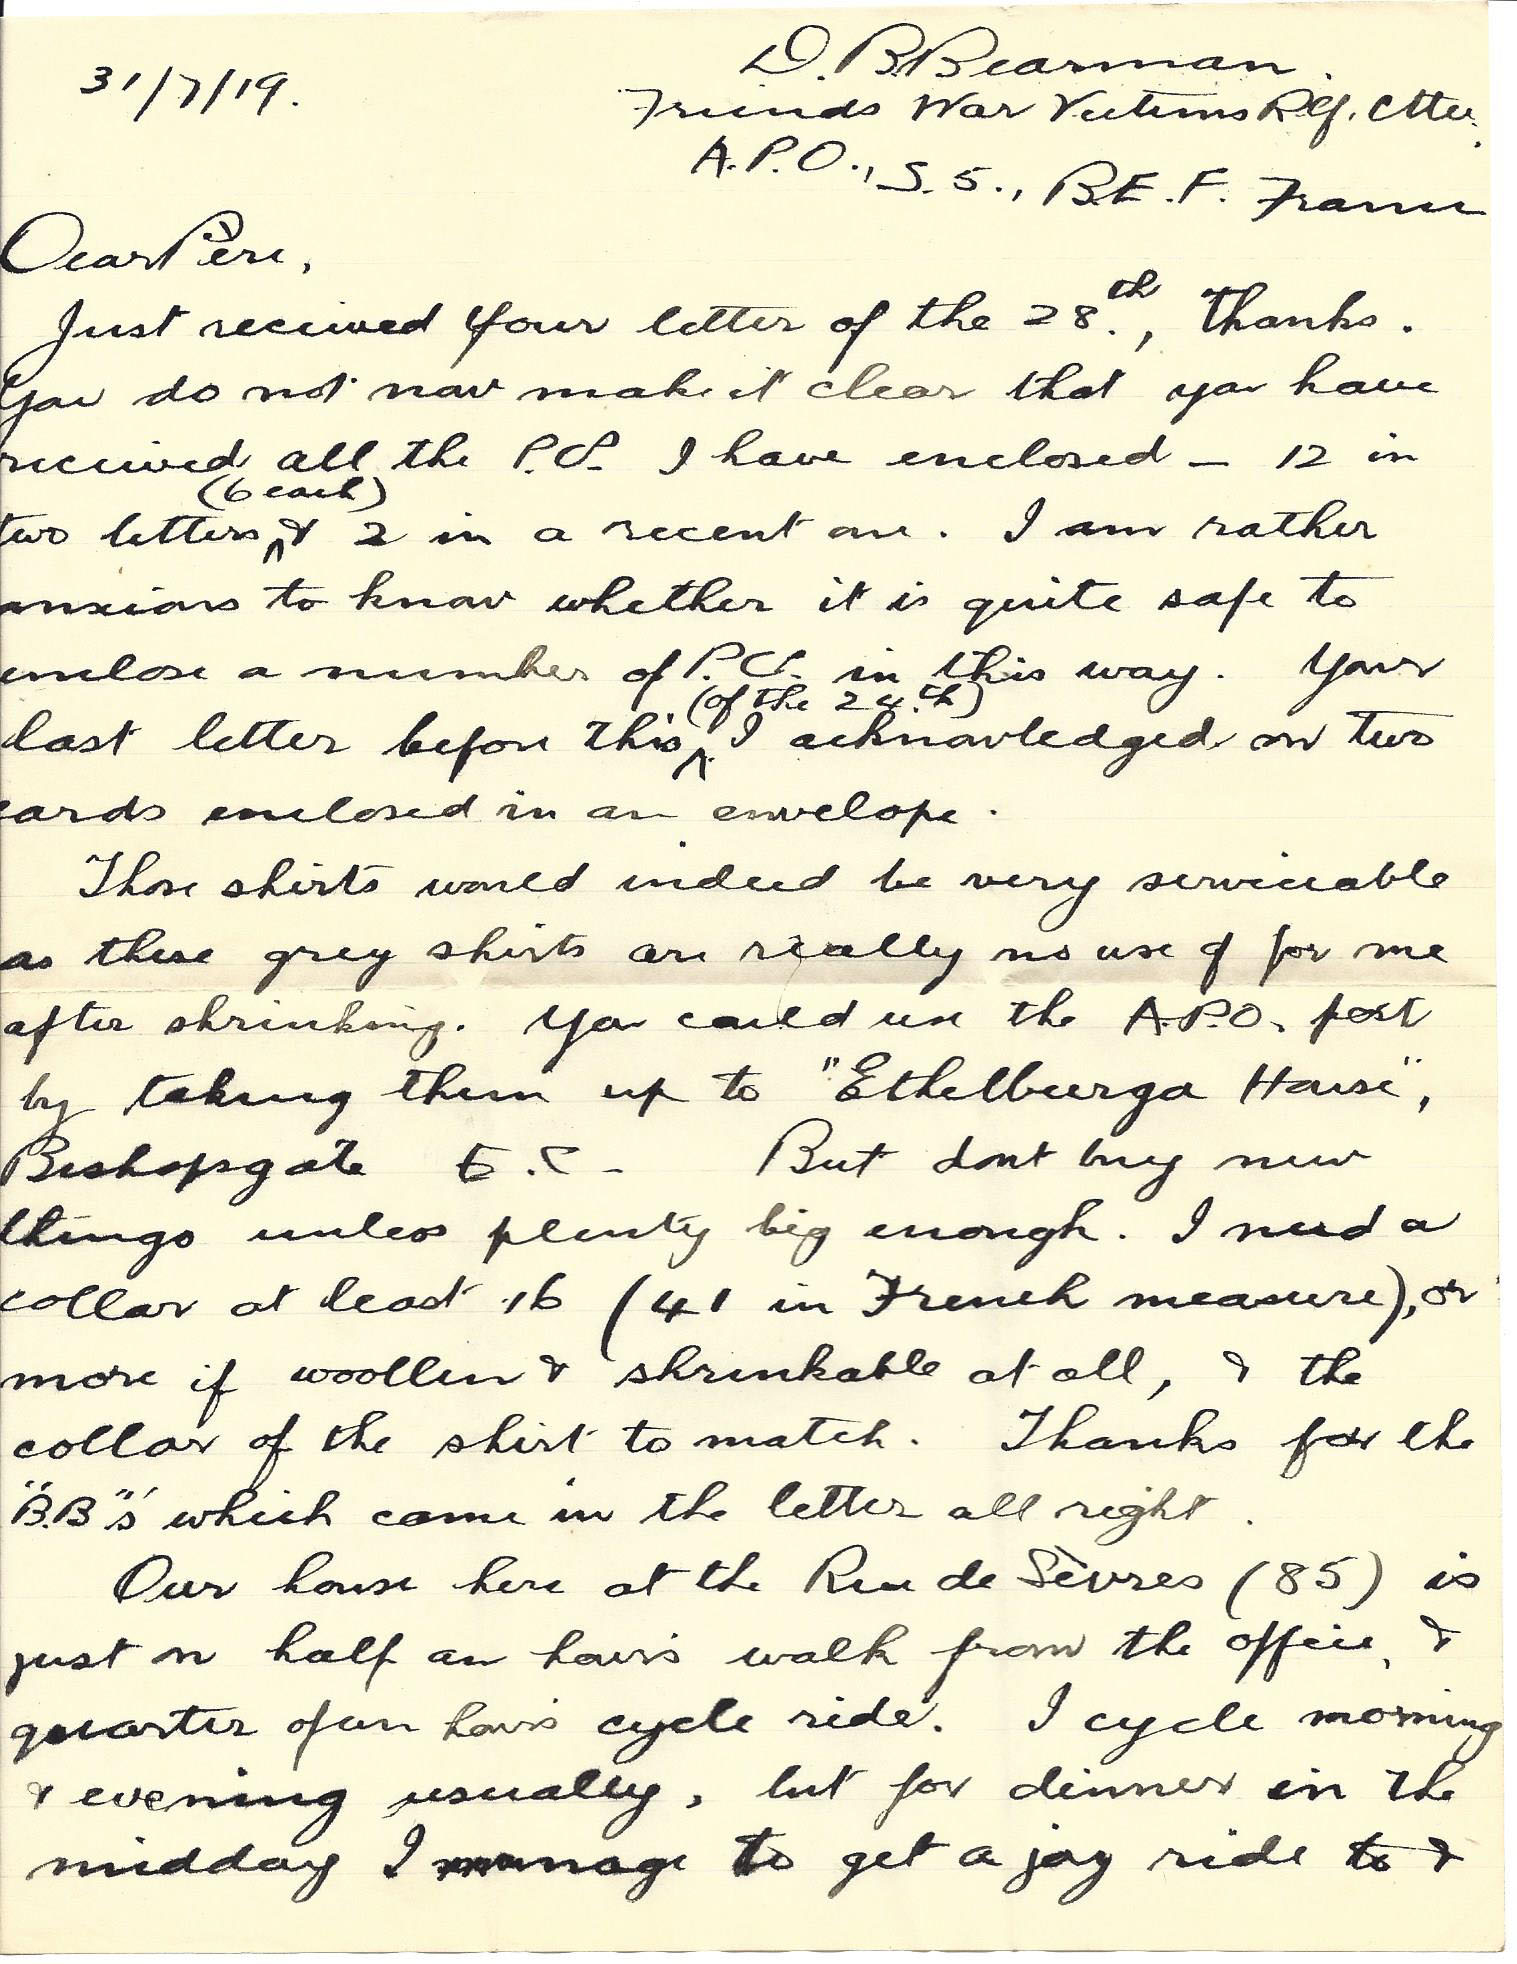 31/7/19.
D. B. Bearman.
Friends War Victims Rlf. Cttee.
A.P.O., S. 5., B.E.F. France
Dear Père,
Just received your letter of the 28th., thanks.
You do not now make it clear that you have
received all the P.O. I have enclosed - 12 in
two letters (6 each) & 2 in a recent one. I am rather
anxious to know whether it is quite safe to
enclose a number of P.O. in this way. Your
last letter before this (of the 24th) I acknowledged on two
cards enclosed in an envelope.
Those shirts would indeed be very serviceable
as these grey shirts are really no use for me
after shrinking. You could use the A.P.O. post
by taking them up to "Ethelburga House",
Bishopsgate E.C. But dont buy new
things unless plenty big enough. I need a
collar at least 16 (41 in French measure), or
more if woollen & shrinkable at all, & the
collar of the shirt to match. Thanks for the
"B.B"s' which came in the letter all right.
Our house here at the Rue de Sèvres (85) is
just on half an hour's walk from the office, &
quarter of an hour's cycle ride. I cycle morning
& evening usually, but for dinner in the
midday I manage to get a joy ride to &